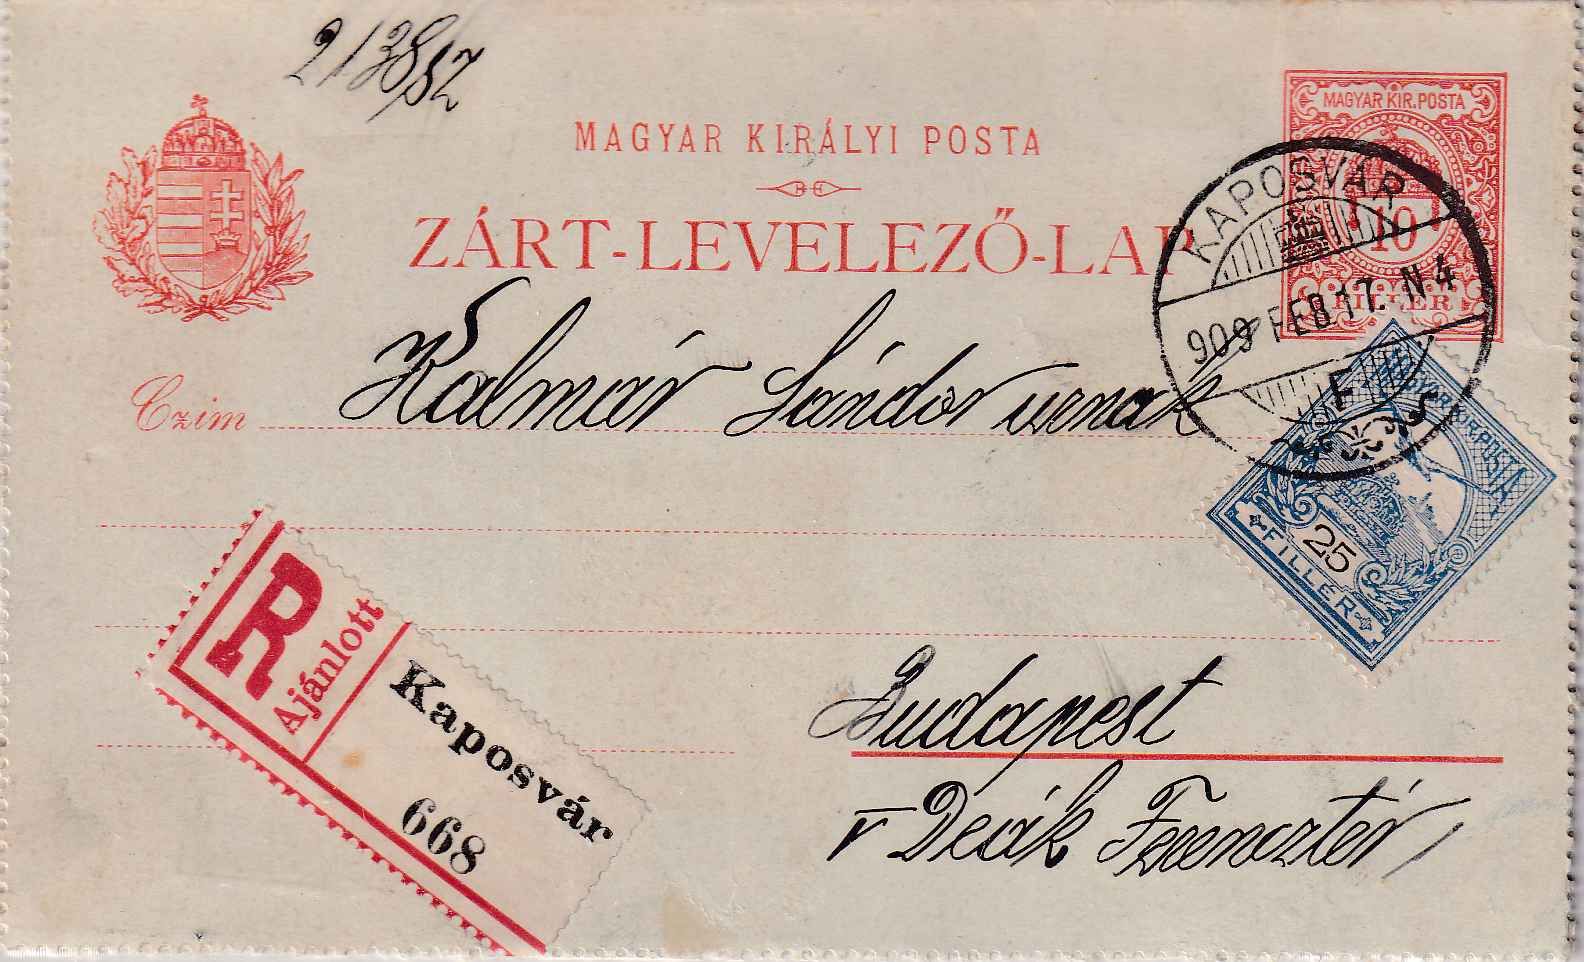 21382
MAGYAR KIRÁLYI POSTA
ZÁRT-LEVELEZŐ-LAP
MAGYAR KIR. POSTA
10
FILLÉR
KAPOSVÁR
909 FEB 17. N 4
Czim
Kalmár Sándor urnak
MAGYAR KIR. POSTA
25
FILLÉR
R
Ajánlott
Kaposvár
668
Budapest
V Deák Ferencztér